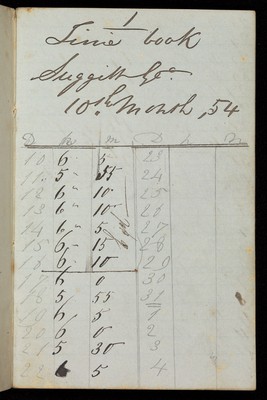 1
Time book
Suggitt Geo.
10th Month, 54
D h m D h m
10 6 5 23
11 5 55 24
12 6 10 25
13 6 10 26
14 6 5 27
15 6 15 28
16 6 10 29
17 6 0 30
18 5 55 31
19 6 5 1
20 6 0 2
21 5 30 3
22 6 5 4